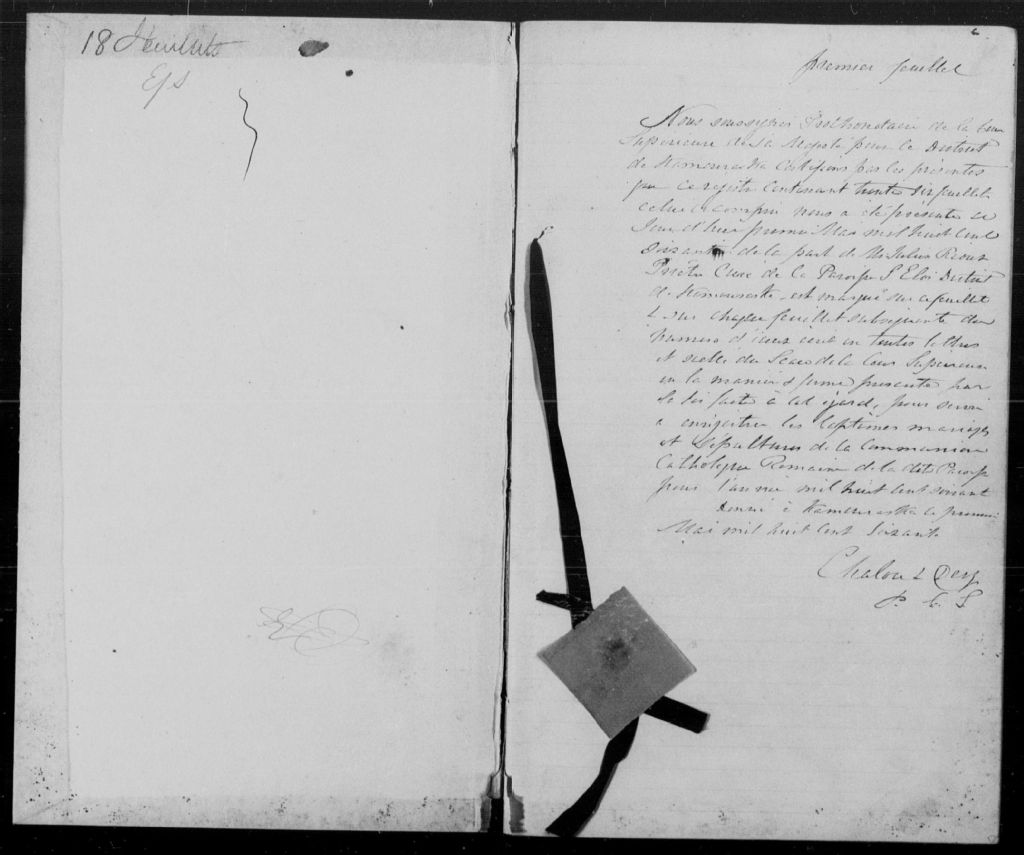 18 feuillets
premier feuillet
Nous soussignés Prothonotaire de la Cour
Superieure de Sa Majesté pour le District
de Kamouraska Certifions par les présentes
que ce registre Contenant trente six feuillets
celui ci compris nous a été présenté ce
Jour d'hui premier Mai mil huit cent
soixante de la part de Mr Julus Roux
Prêtre Curé de la Paroisse S. Eloi District
de Kamouraska, est marqué sur ce feuillet
& sur chaque feuillet subsequente du
numero d'iceux ecrit en toutes lettres
et scellé du Sceau de la Cour Superieure
en la maniere & forme presente par
la loi faite à cet égard, pour servir
a enregistrer les Baptêmes mariages
et Sepultures de la Communion
Catholique Romaine de la dite Paroisse
pour l'année mil huit cent soixante
Donné à Kamouraska ce premier
Mai mil huit cent soixante
Chalou & Dery
P. C. S